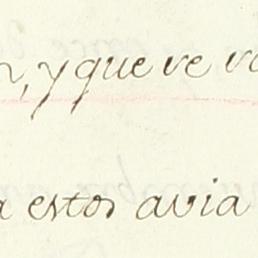 , y que ve
a estos avia